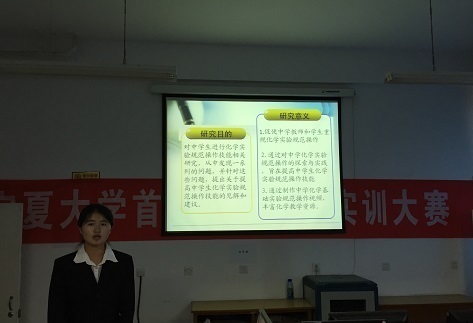 研究目的
对中学生进行化学实
验规范操作技能相关
研究，从中发现一系
列的问题，并针对这
些问题，提出关于提
高中学生化学实验规
范操作技能的见解和
建议。
研究意义
1.促使中学教师和学生重
视化学实验规范操作
2. 通过对中学化学实
验规范操作的探索与实践
，旨在提高中学生化学
实验规范操作技能
3. 通过制作中学化学基
础实验规范操作视频，
丰富化学教学资源。
夏大学首
实训大赛